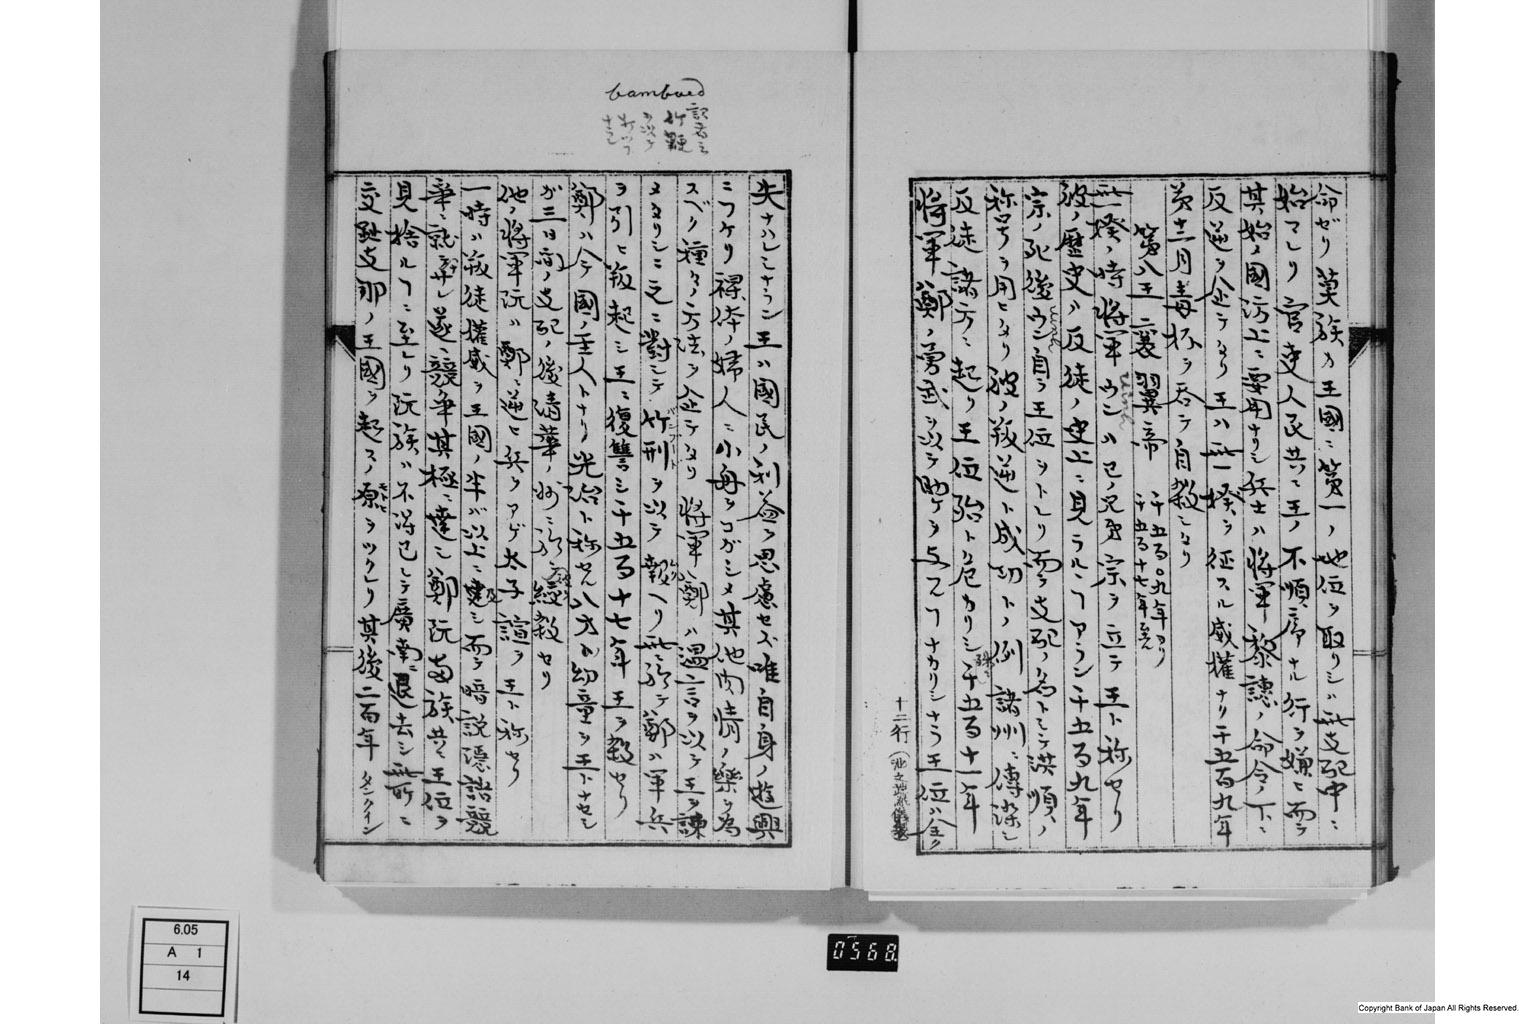 命ゼリ莫族カ王國ニ第一ノ地位ヲ取リシハ此支配中ニ
始マレリ官吏人民共ニ王ノ不順序ナル行ヲ嫌ヒ而テ
其始メ國法上ニ要用ナリシ兵士ハ将軍黎譓ノ命令ノ下ニ
反逆ヲ企テタリ王ハ此一揆ヲ征スル威權ナリ千五百九年
第十二月毒杯ヲ呑テ自殺シタリ
第八王 襄翼帝 千五百〇九年ヨリ 千五百十七年ニ至ル
此一揆ノ時将軍ウンハ己ノ兄宗ヲ立テ王ト称セリ
彼ノ歴史ハ反徒ノ史上ニ見ラルヿアラン千五百九年
宗ノ死後ウン自ラ王位ヲトレリ而テ支配ノ名トシテ洪順ノ
称号ヲ用ヒタリ彼ノ叛逆ト成功トノ例諸州ニ傳染シ
反徒諸方ニ起リ王位殆ト危カリシ千五百十一年
将軍鄭ノ勇武ヲ以テ助ケヲ与フルヿナカリシナラ王位ハ全ク
十二行
失ナハレシナラン王ハ國民ノ利益ヲ思慮セズ唯自身ノ遊興
ニフケリ裸体ノ婦人ニ小舟ヲコガシメ其他内情ノ樂ヲ為
スベク種々ノ方法ヲ企テタリ将軍鄭ハ温言ヲ以テ王ヲ諫
メタリシニ之ニ對シテ竹刑ヲ以テ報ヘリ此ニ於テ鄭ハ軍兵
ヲ引ヒ叛起シ王ニ復讐シ千五百十七年王ヲ殺セリ
鄭ハ今國ノ主人トナリ光治ト称セル八才ノ幼童ヲ王トナセシ
ガ三日間ノ支配ノ後清華ノ州ニ於テ絞殺セリ
他ノ将軍阮ハ鄭ニ逆ヒ兵ヲアゲ太子諠ヲ王ト称セリ
一時ハ叛徒權威ヲ王國ノ半バ以上ニ及シ而テ暗説隠諸競
争ニ就テ遂ニ競争其極ニ達シ鄭阮両族共ニ王位ヲ
見捨ルヿニ至レリ阮族ハ不得已シテ廣南ニ退去シ此所ニ
交趾支那ノ王國ヲ起スノ原ヲツクレリ其後二百年 タンクイン
bambued
記者云
竹鞭
ヲ以テ
打ツヿ
ナラン
0568
6.05
A 1
14
Copyright Bank of Japan All Rights Reserved.